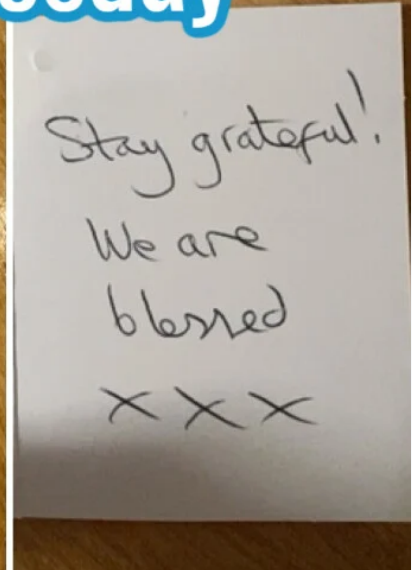 Stay grateful!
We are
blessed
x x x